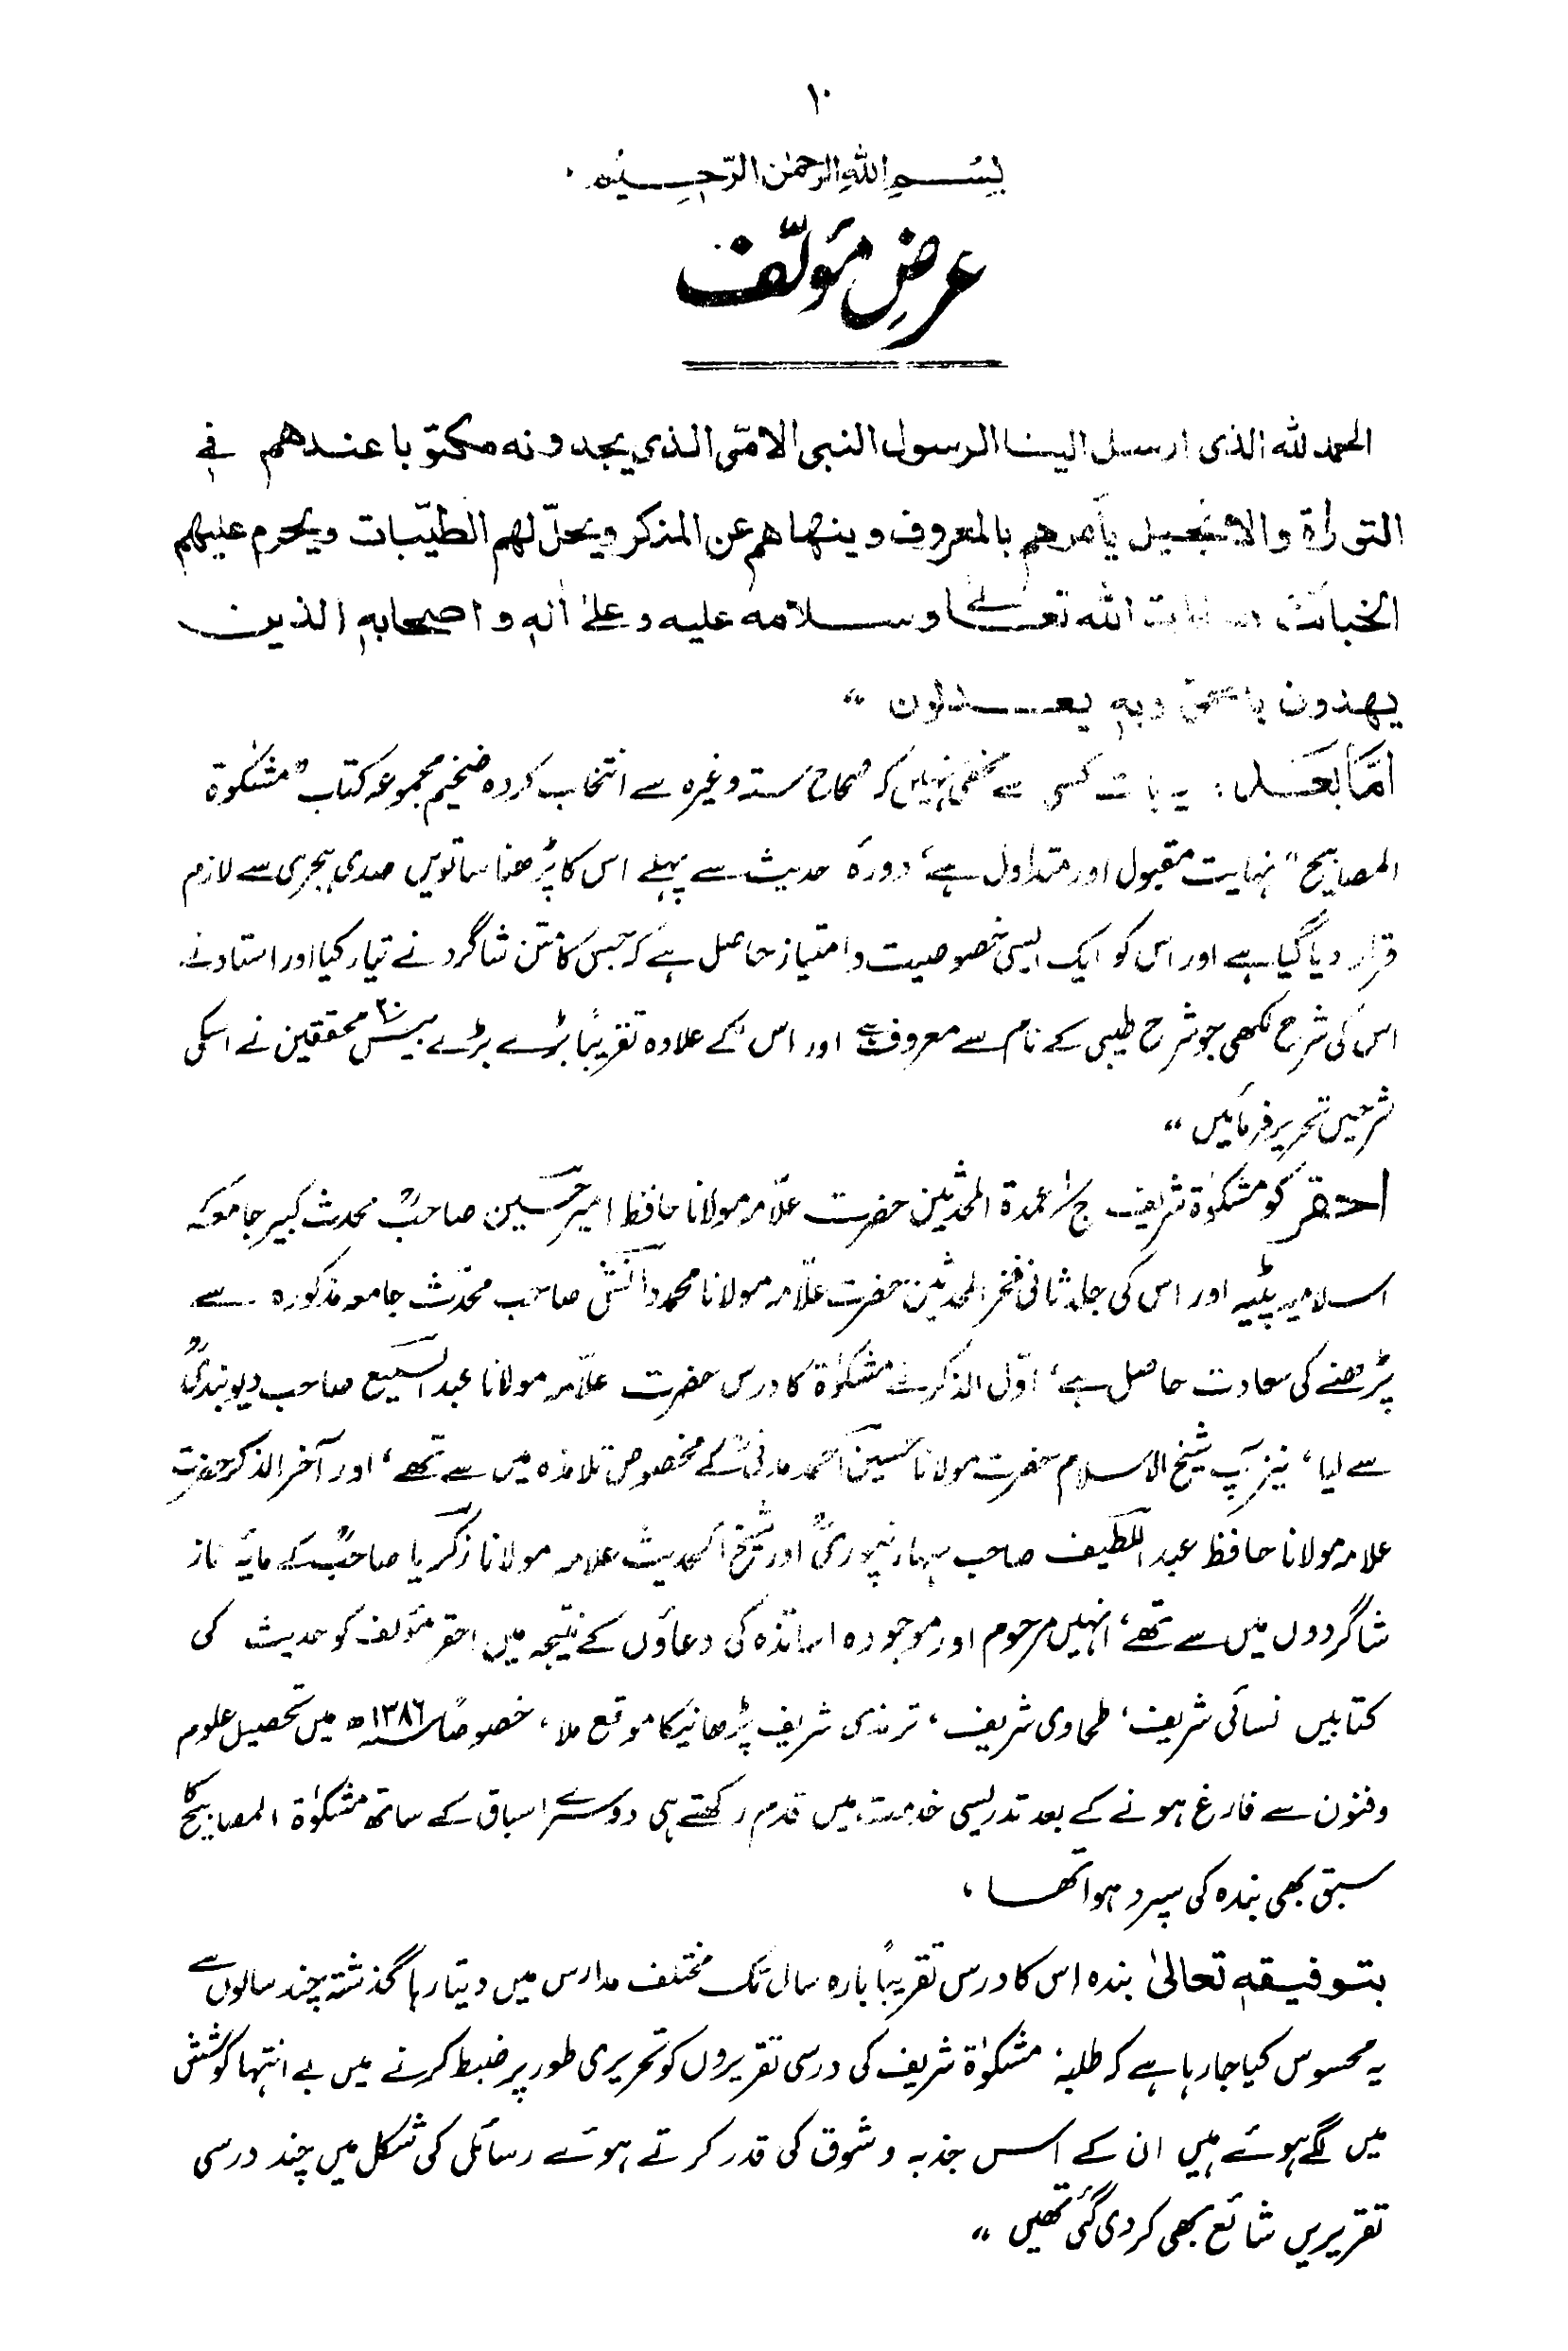 ۱۰
بسم الله الرحمٰن الرّحیم
عرضِ مؤلّف
الحمد لله الذی ارسل الینا الرسول النبی الامّی الذی یجدونه مکتوبا عندهم فی
التوراة والانجیل یأمرهم بالمعروف وینهاهم عن المنکر ویحلّ لهم الطیّبات ویحرم علیهم
الخبائث صلوات الله تعالیٰ وسلامه علیه وعلیٰ اٰلهٖ واصحابهٖ الذین
یهدون بالحق وبهٖ یعدلون "
امّا بعد : یہ بات کسی سے مخفی نہیں کہ صحاح ستہ وغیرہ سے انتخاب کردہ ضخیم مجموعہ کتاب "مشکٰوۃ
المصابیح" نہایت مقبول اور متداول ہے، دورۂ حدیث سے پہلے اس کا پڑھنا ساتویں صدی ہجری سے لازم
قرار دیا گیا ہے اور اس کو ایک ایسی خصوصیت و امتیاز حاصل ہے کہ جس کا متن شاگرد نے تیار کیا اور استاد نے
اس کی شرح لکھی جو شرح طیبی کے نام سے معروف ہے اور اس کے علاوہ تقریبًا بڑے بڑے بیس۲۰ محققین نے اسکی
شرحیں تحریر فرمائیں "
احقر کو مشکوٰۃ شریف ج۱ عمدۃ المحدثین حضرت علّامہ مولانا حافظ امیر حسین صاحبؒ محدث کبیر جامعہ
اسلامیہ پٹیہ اور اس کی جلد ثانی فخر المحدثین حضرت علّامہ مولانا محمد دانش صاحب محدّث جامعہ مذکورہ سے
پڑھنے کی سعادت حاصل ہے، اوّل الذکر نے مشکوٰۃ کا درس حضرت علاّمہ مولانا عبد السمیع صاحب دیوبندیؒ
سے لیا، نیز آپ شیخ الاسلام حضرت مولانا حسین احمد مدنیؒ کے مخصوص تلامذہ میں سے تھے، اور آخر الذکر حضرت
علامہ مولانا حافظ عبد اللطیف صاحب سہارنپوریؒ اور شیخ الحدیث علامہ مولانا زکریا صاحبؒ کے مایۂ ناز
شاگردوں میں سے تھے، انہیں مرحوم اور موجودہ اساتذہ کی دعاؤں کے نتیجہ میں احقر مؤلف کو حدیث کی
کتابیں نسائی شریف، طحاوی شریف، ترمذی شریف پڑھانیکا موقع ملا، خصوصًا ۱۳۸۶ھ میں تحصیل علوم
و فنون سے فارغ ہونے کے بعد تدریسی خدمت میں قدم رکھتے ہی دوسرے اسباق کے ساتھ مشکوٰۃ المصابیح کا
سبق بھی بندہ کی سپرد ہوا تھا،
بتوفیقہٖ تعالیٰ بندہ اس کا درس تقریبًا بارہ سال تک مختلف مدارس میں دیتا رہا گذشتہ چند سالوں سے
یہ محسوس کیا جا رہا ہے کہ طلبۂ مشکوٰۃ شریف کی درسی تقریروں کو تحریری طور پر ضبط کرنے میں بے انتہا کوشش
میں لگے ہوئے ہیں ان کے اس جذبہ و شوق کی قدر کرتے ہوئے رسائل کی شکل میں چند درسی
تقریریں شائع بھی کر دی گئی تھیں "